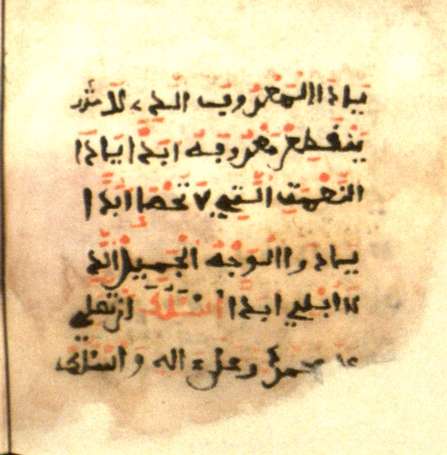 ياذا المعروف الذي لا
ينقطع معروفه ابدا ياذا
النعمت التي لا تحصا ابدا
ياذوا الوجه الجميل الذ
لا ابلي ابدا اسئلك ان تصلي
محمد وعلى اله واسئلك